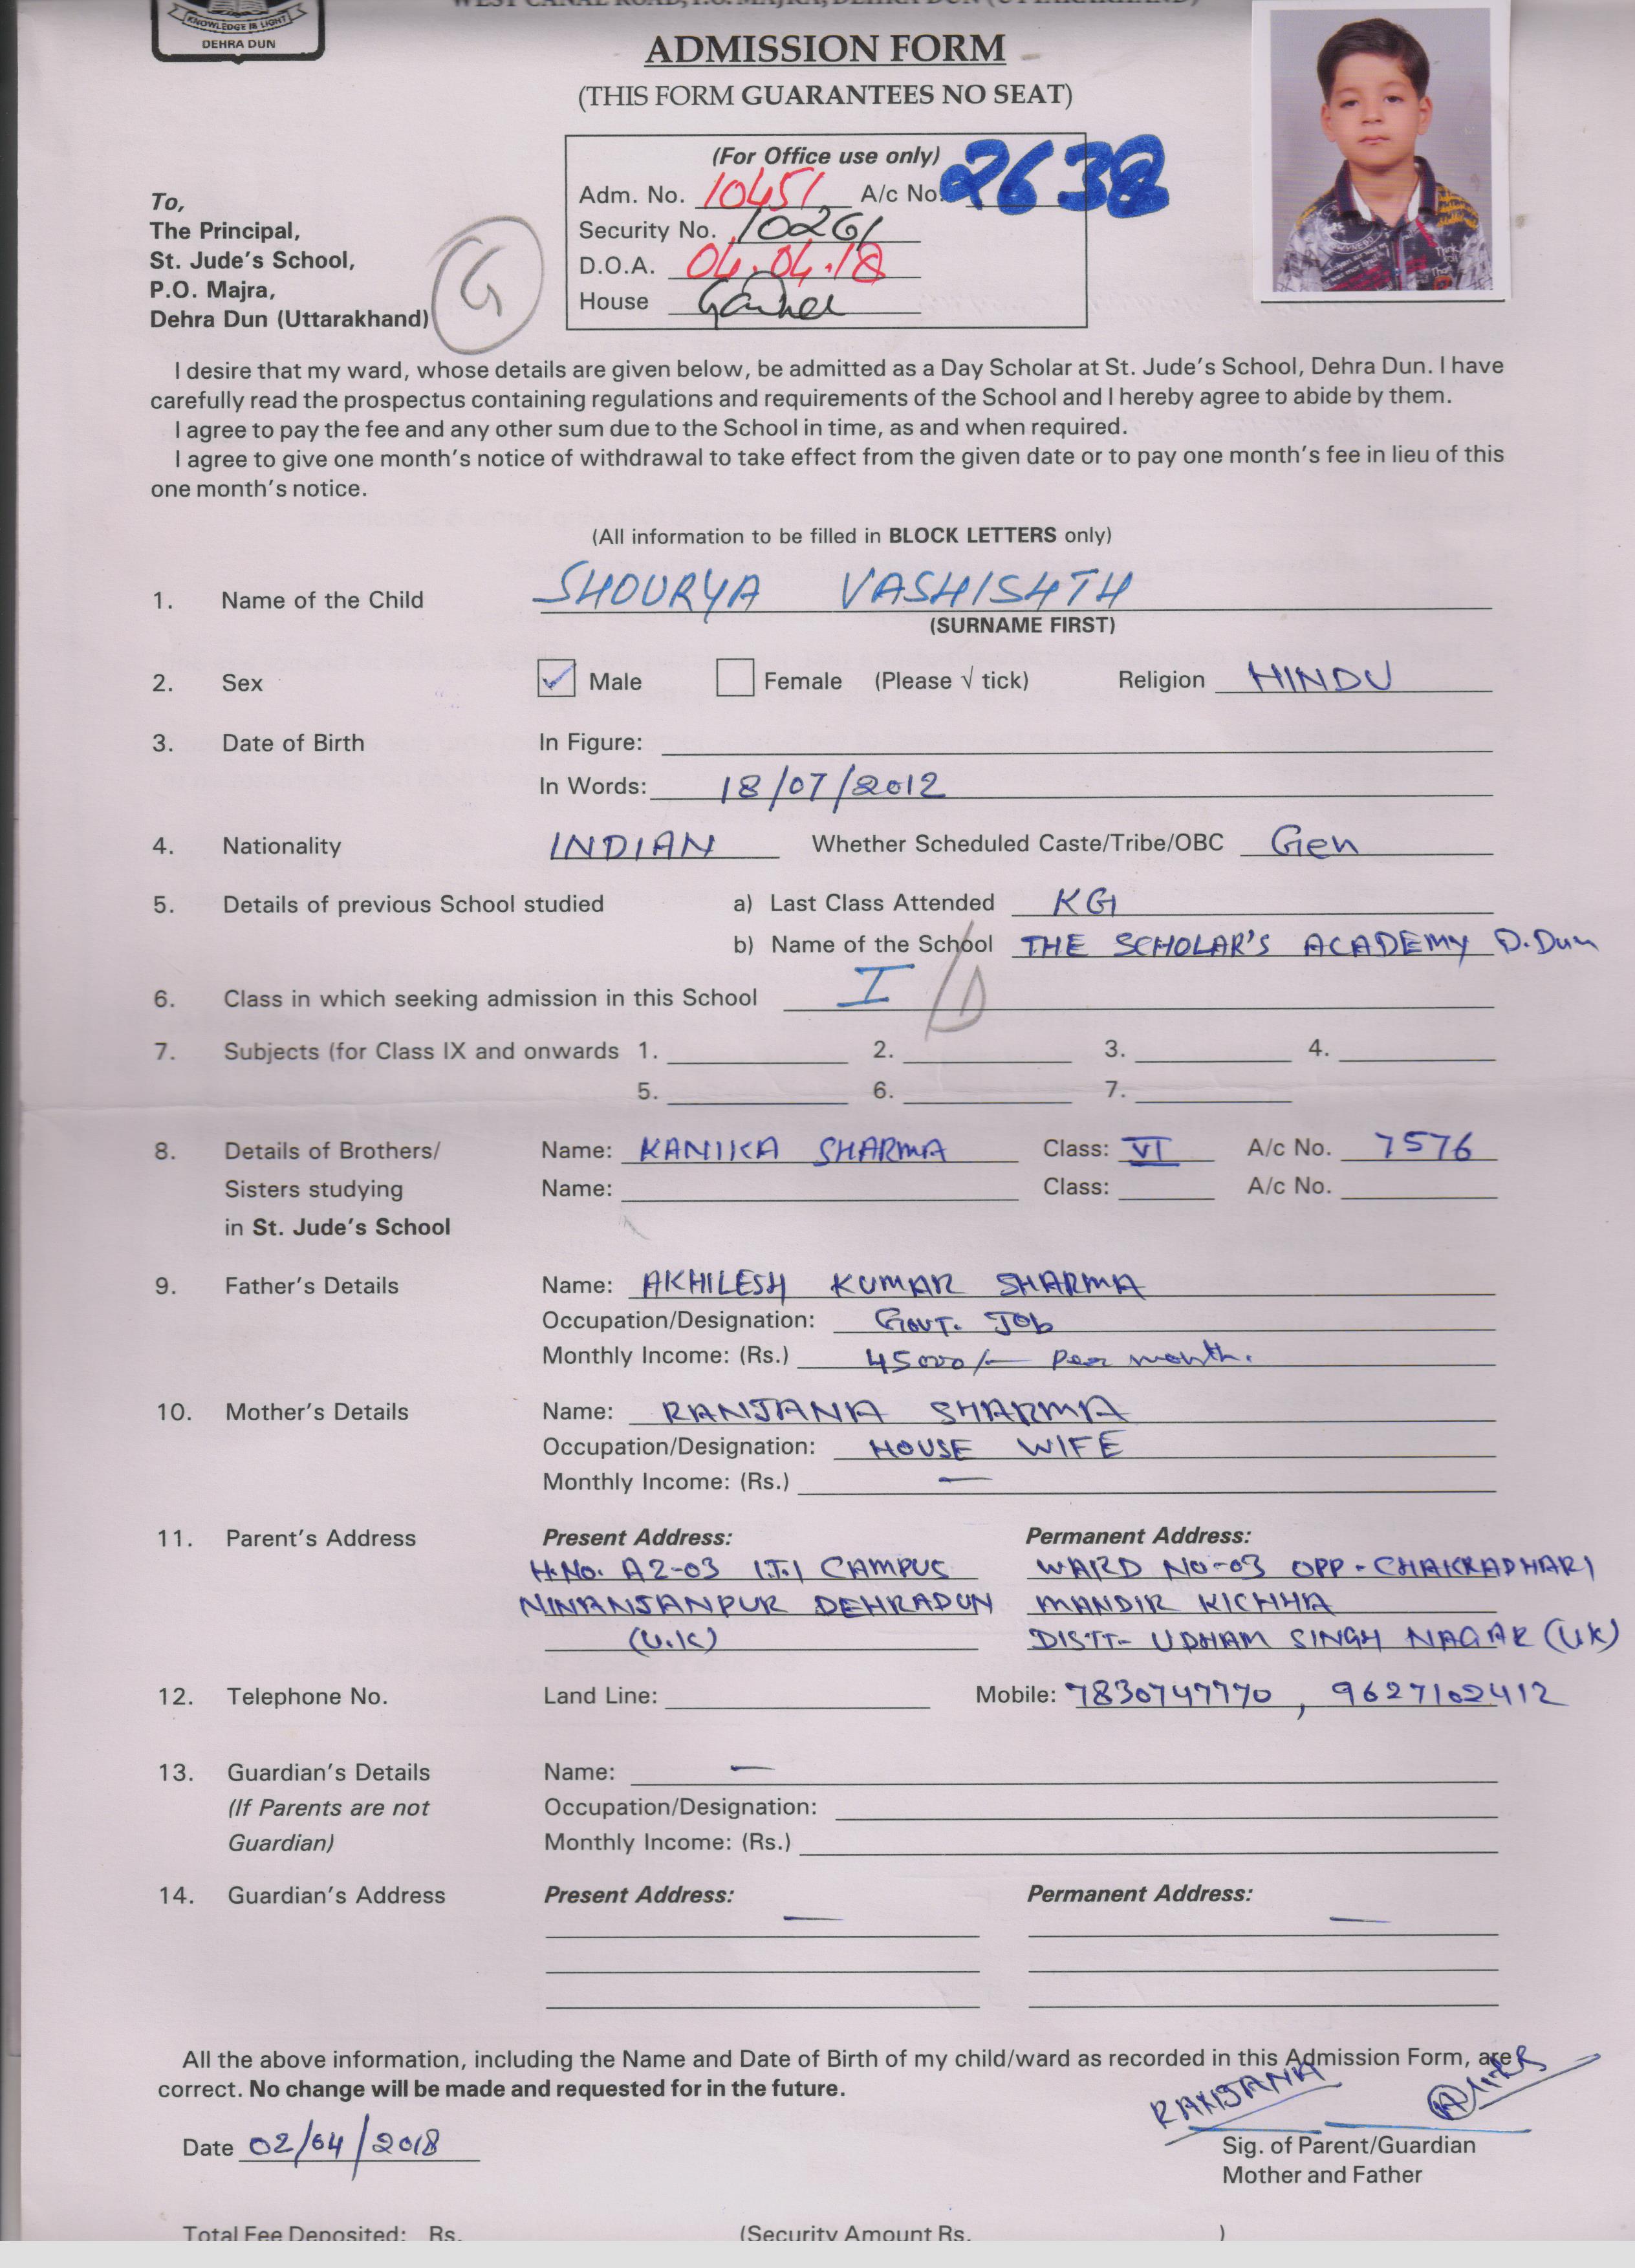 KNOWLEDGE IS LIGHT
DEHRA DUN
WEST CANAL ROAD, P.O. MAJRA, DEHRA DUN (UTTARAKHAND)
ADMISSION FORM
(THIS FORM GUARANTEES NO SEAT)
(For Office use only)
Adm. No. 10451 A/c No. 2638
Security No. 10261
D.O.A. 04.04.18
House
G
To,
The Principal,
St. Jude's School,
P.O. Majra,
Dehra Dun (Uttarakhand)
I desire that my ward, whose details are given below, be admitted as a Day Scholar at St. Jude's School, Dehra Dun. I have
carefully read the prospectus containing regulations and requirements of the School and I hereby agree to abide by them.
I agree to pay the fee and any other sum due to the School in time, as and when required.
I agree to give one month's notice of withdrawal to take effect from the given date or to pay one month's fee in lieu of this
one month's notice.
(All information to be filled in BLOCK LETTERS only)
1. Name of the Child SHOURYA VASHISHTH
(SURNAME FIRST)
2. Sex ✓ Male Female (Please √ tick) Religion HINDU
3. Date of Birth In Figure:
In Words: 18/07/2012
4. Nationality INDIAN Whether Scheduled Caste/Tribe/OBC Gen
5. Details of previous School studied a) Last Class Attended KG
b) Name of the School THE SCHOLAR'S ACADEMY D.Dun
6. Class in which seeking admission in this School I /D
7. Subjects (for Class IX and onwards 1. 2. 3. 4.
5. 6. 7.
8. Details of Brothers/ Name: KANIKA SHARMA Class: VI A/c No. 7576
Sisters studying Name: Class: A/c No.
in St. Jude's School
9. Father's Details Name: AKHILESH KUMAR SHARMA
Occupation/Designation: GOVT. JOb
Monthly Income: (Rs.) 45000/- Per month.
10. Mother's Details Name: RANJANA SHARMA
Occupation/Designation: HOUSE WIFE
Monthly Income: (Rs.) —
11. Parent's Address Present Address: Permanent Address:
H.No. A2-03 I.T.I CAMPUS WARD NO-03 OPP-CHAKRADHARI
NIRANJANPUR DEHRADUN MANDIR KICHHA
(U.K) DISTT- UDHAM SINGH NAGAR (UK)
12. Telephone No. Land Line: Mobile: 7830747770, 9627102412
13. Guardian's Details Name: —
(If Parents are not Occupation/Designation:
Guardian) Monthly Income: (Rs.)
14. Guardian's Address Present Address: Permanent Address:
— —
All the above information, including the Name and Date of Birth of my child/ward as recorded in this Admission Form, are
correct. No change will be made and requested for in the future.
RANJANA
Date 02/04/2018
Sig. of Parent/Guardian
Mother and Father
Total Fee Deposited: Rs. (Security Amount Rs. )